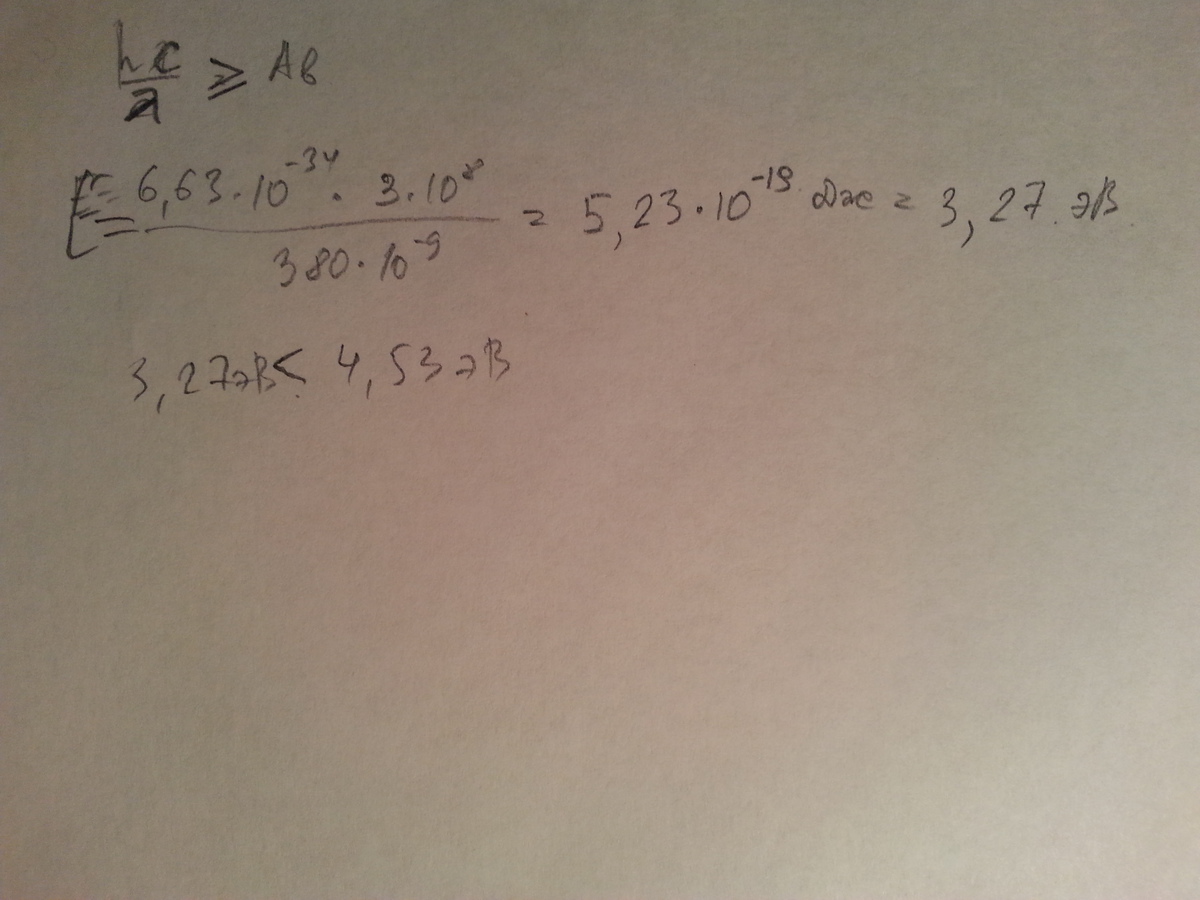 hc/λ ≥ Aв
E = 6,63·10⁻³⁴ · 3·10⁸ / 380·10⁻⁹ = 5,23·10⁻¹⁹ Дж = 3,27 эВ
3,27эВ < 4,53 эВ